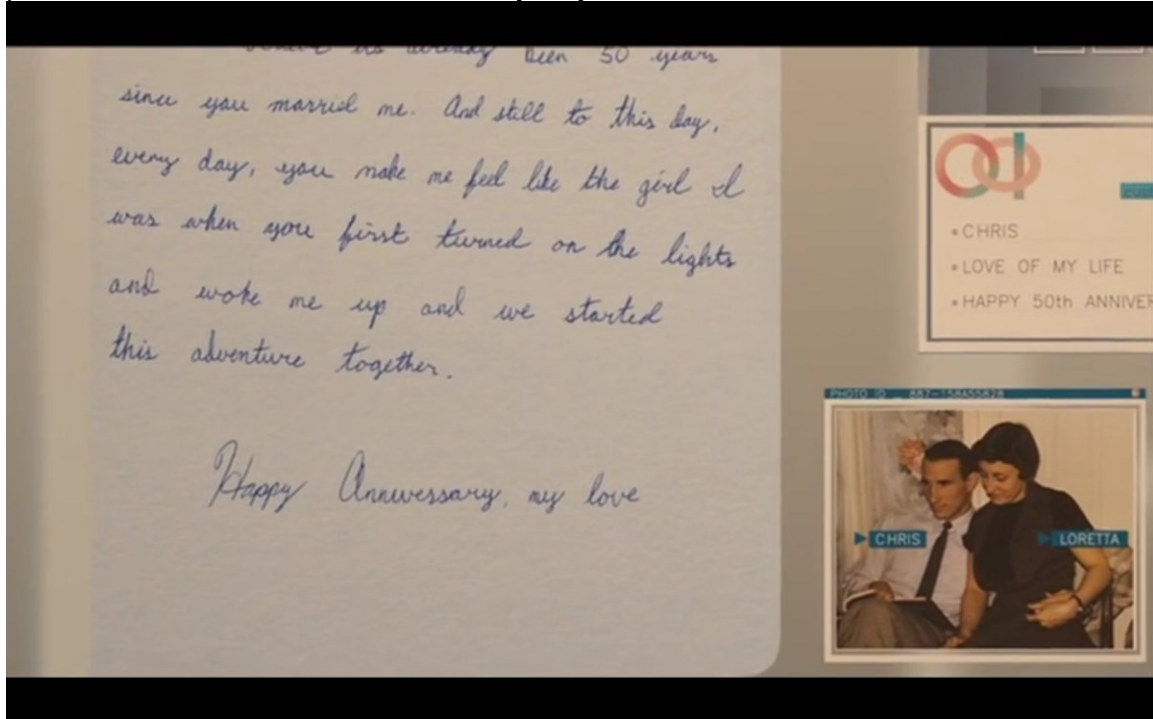 its already been 50 years
since you married me. And still to this day,
every day, you make me feel like the girl I
was when you first turned on the lights
and woke me up and we started
this adventure together.
Happy Anniverssary, my love
CHRIS
LOVE OF MY LIFE
HAPPY 50th ANNIVER
PHOTO ID
CHRIS
LORETTA